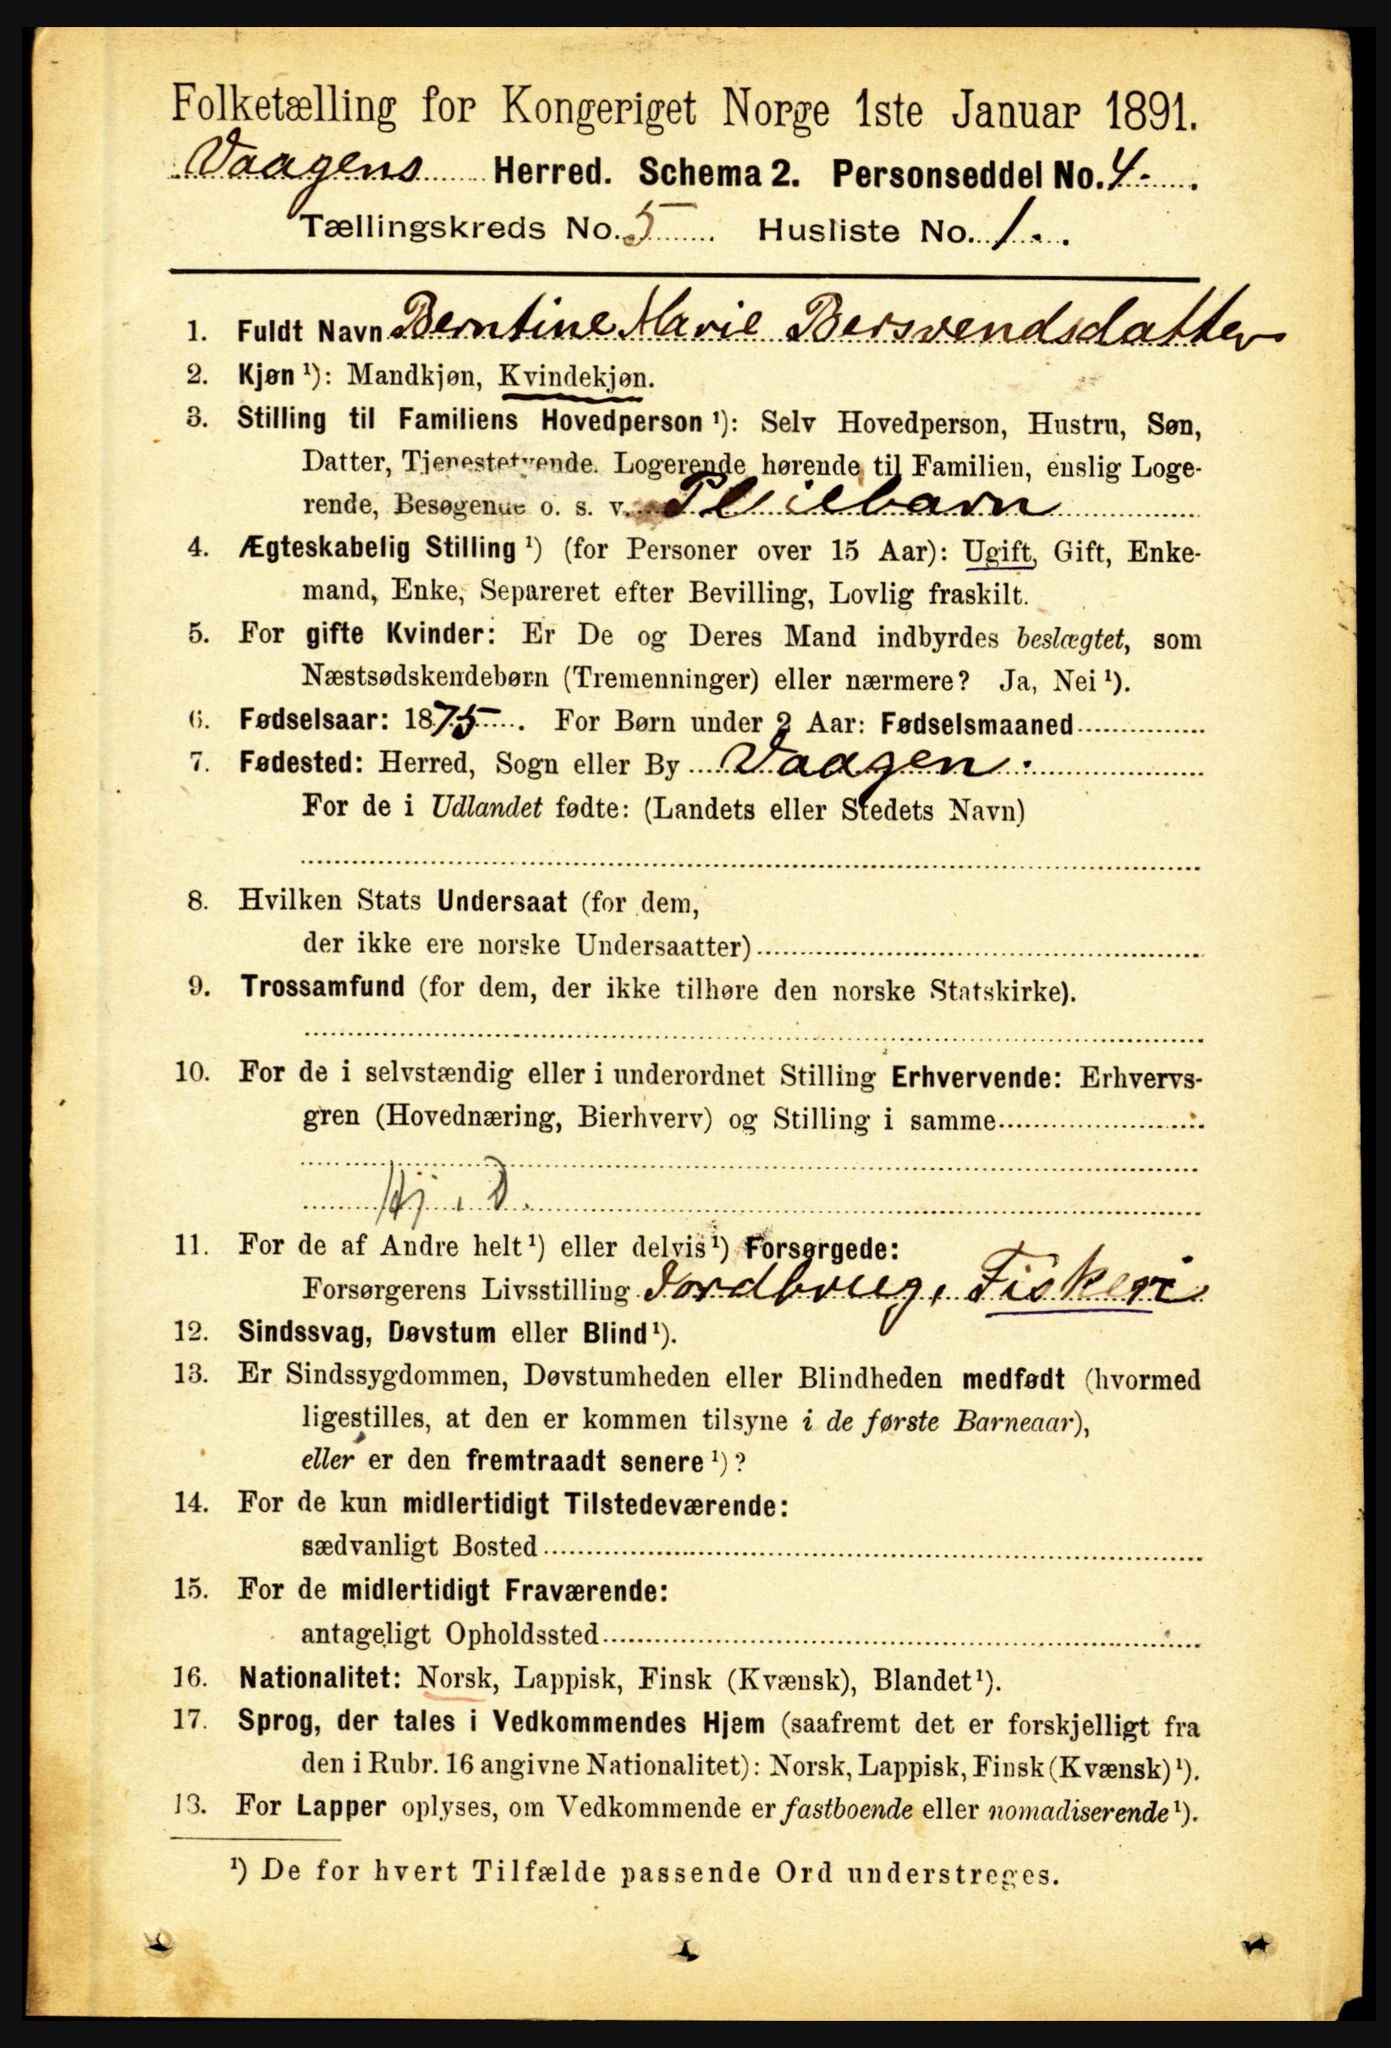 Folketælling for Kongeriget Norge 1ste Januar 1891.
Vaagens Herred. Schema 2. Personseddel No. 4.
Tællingskreds No. 5 Husliste No. 1.
1. Fuldt Navn Berntine Marie Bersvendsdatter
2. Kjøn ¹): Mandkjøn, Kvindekjøn.
3. Stilling til Familiens Hovedperson ¹): Selv Hovedperson, Hustru, Søn,
Datter, Tjenestetyende. Logerende hørende til Familien, enslig Loge-
rende, Besøgende o. s. v. Pleiebarn
4. Ægteskabelig Stilling ¹) (for Personer over 15 Aar): Ugift, Gift, Enke-
mand, Enke, Separeret efter Bevilling, Lovlig fraskilt.
5. For gifte Kvinder: Er De og Deres Mand indbyrdes beslægtet, som
Næstsødskendebørn (Tremenninger) eller nærmere? Ja, Nei ¹).
6. Fødselsaar: 1875. For Børn under 2 Aar: Fødselsmaaned
7. Fødested: Herred, Sogn eller By Vaagen.
For de i Udlandet fødte: (Landets eller Stedets Navn)
8. Hvilken Stats Undersaat (for dem,
der ikke ere norske Undersaatter)
9. Trossamfund (for dem, der ikke tilhøre den norske Statskirke).
10. For de i selvstændig eller i underordnet Stilling Erhvervende: Erhvervs-
gren (Hovednæring, Bierhverv) og Stilling i samme
Hj. D.
11. For de af Andre helt ¹) eller delvis ¹) Forsørgede:
Forsørgerens Livsstilling Jordbrug, Fiskeri
12. Sindssvag, Døvstum eller Blind ¹).
13. Er Sindssygdommen, Døvstumheden eller Blindheden medfødt (hvormed
ligestilles, at den er kommen tilsyne i de første Barneaar),
eller er den fremtraadt senere ¹)?
14. For de kun midlertidigt Tilstedeværende:
sædvanligt Bosted
15. For de midlertidigt Fraværende:
antageligt Opholdssted
16. Nationalitet: Norsk, Lappisk, Finsk (Kvænsk), Blandet ¹).
17. Sprog, der tales i Vedkommendes Hjem (saafremt det er forskjelligt fra
den i Rubr. 16 angivne Nationalitet): Norsk, Lappisk, Finsk (Kvænsk) ¹).
13. For Lapper oplyses, om Vedkommende er fastboende eller nomadiserende ¹).
¹) De for hvert Tilfælde passende Ord understreges.